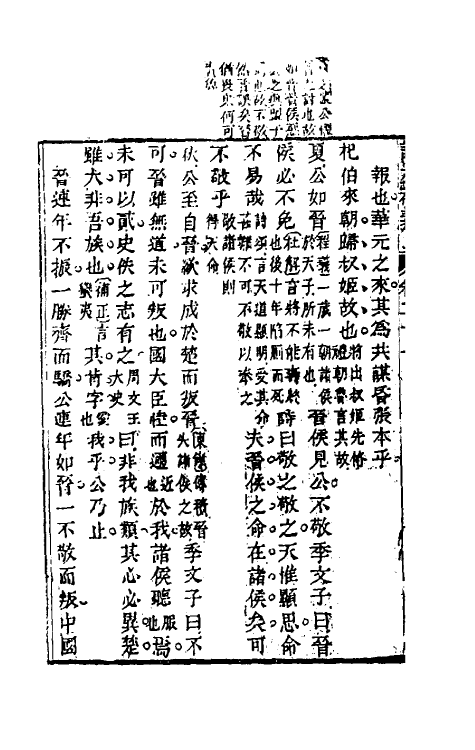 猶畏此何可
報也華元之來其為共謀晉張本乎
杞伯來朝歸叔姬故也將出叔姬先脩禮朝魯言其故
夏公如晉一歲一朝諸侯於天子所未有也晉侯見公不敬季文子曰晉
侯必不免杜解言將不能壽終也後十年陷廁而死詩曰敬之敬之天惟顯思命
不易哉詩頌言天道顯明受其命甚難不可不敬以奉之夫晉侯之命在諸侯矣可
不敬乎敬諸侯則得天命
秋公至自晉欲求成於楚而叛晉傳積晉失諸侯之故季文子曰不
可晉雖無道未可叛也國大臣睦而邇近也於我諸侯聽服也焉
未可以貳史佚之志有之周文王大史曰非我族類其心必異楚
雖大非吾族也補正言蠻夷其肯字愛我乎公乃止
晉連年不振一勝齊而驕公連年如晉一不敬而叛中國